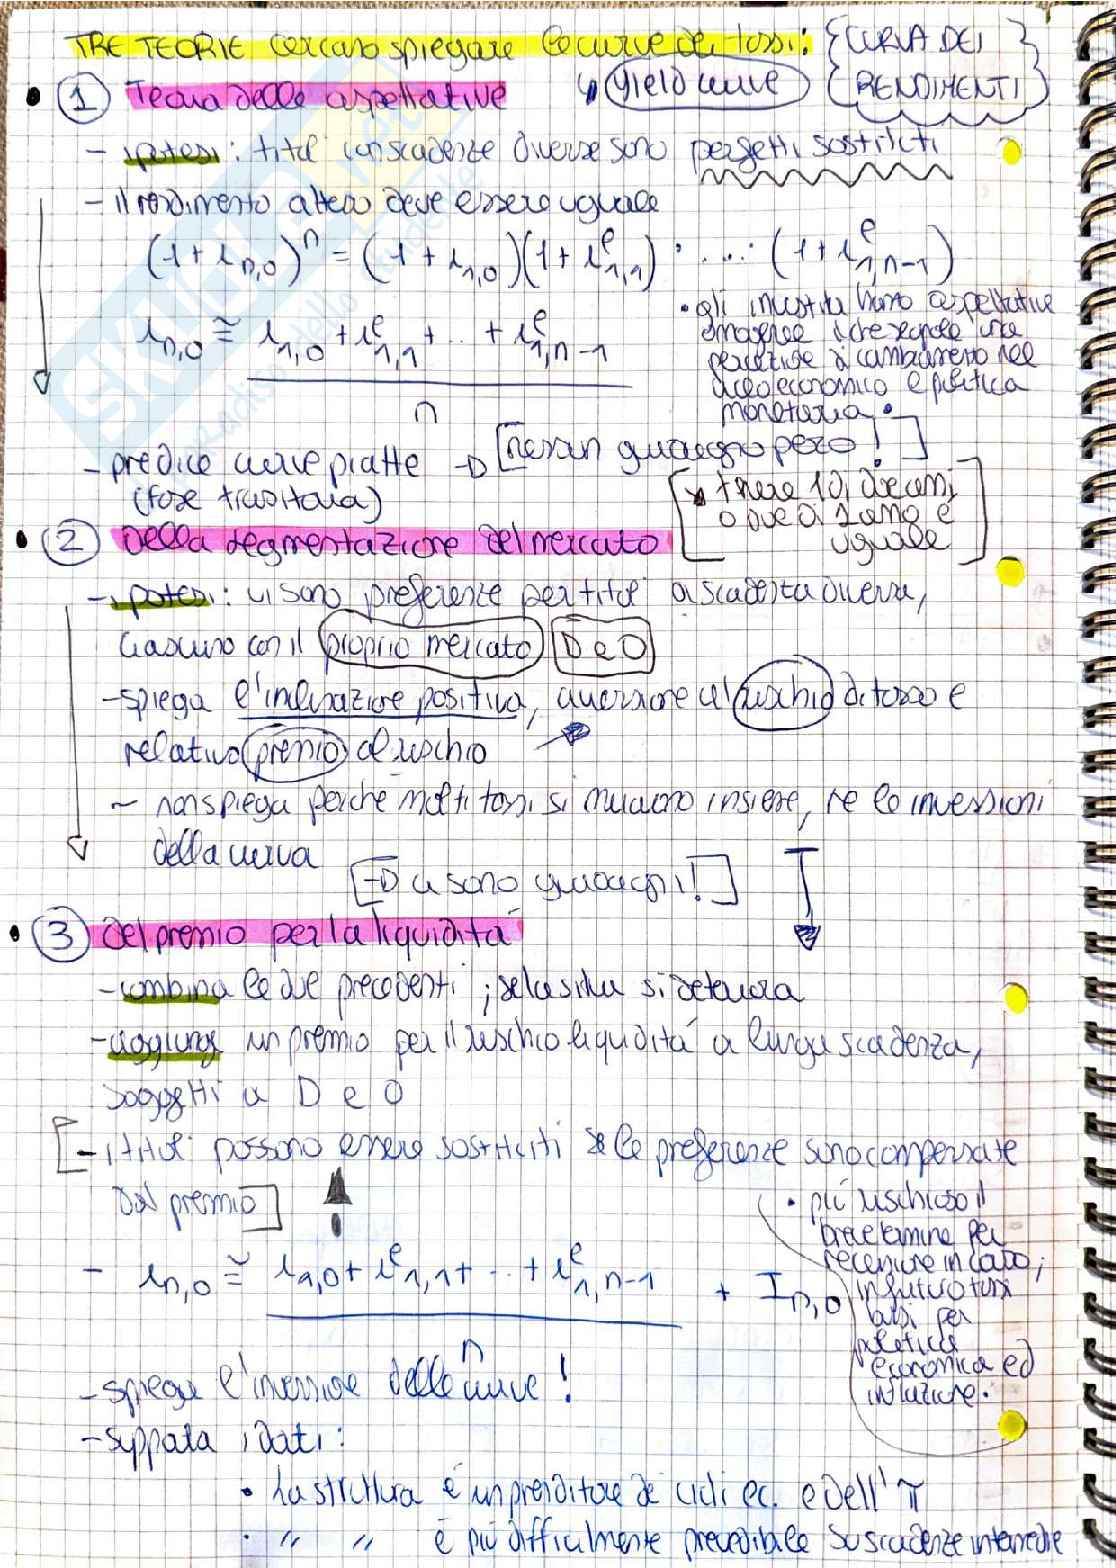 TRE TEORIE cercano spiegare le curve dei tassi: {CURVA DEI
RENDIMENTI}
↳ yield curve
• 1 Teoria delle aspettative
- ipotesi: titoli con scadenze diverse sono perfetti sostituti
- il rendimento atteso deve essere uguale
(1 + i n,0)^n = (1 + i 1,0)(1 + i^e 1,1) · ... · (1 + i^e 1,n-1)
i n,0 ≅ i 1,0 + i^e 1,1 + .. + i^e 1,n-1
n
• gli investitori hanno aspettative
omogenee
percettive di cambiamento nel
ciclo economico e politica
monetaria •
- predice curve piatte → [nessun guadagno però!]
(fase transitoria)
[↘ tenere 10, dieci anni
o due di 1 anno è
uguale]
• 2 Della segmentazione del mercato
- ipotesi: vi sono preferenze per titoli a scadenza diversa,
ciascuno con il proprio mercato D e O
- spiega l'inclinazione positiva, avversione al rischio di tasso e
relativo premio al rischio
~ non spiega perché molti tassi si muovono insieme, né le inversioni
della curva
[→ ci sono guadagni!]
• 3 Del premio per la liquidità
- combina le due precedenti;
- aggiunge un premio per il rischio liquidità a lunga scadenza,
soggetti a D e O
[- i titoli possono essere sostituiti se le preferenze sono compensate
dal premio]
- i n,0 ≅ i 1,0 + i^e 1,1 + .. + i^e 1,n-1 + I n,0
n
• più rischioso il
breve termine per
recessione in corso;
in futuro tassi
bassi per
politica
economica ed
inflazione.
- spiega l'inversione delle curve!
- supporta i dati:
• La struttura è un predittore dei cicli ec. e dell' π
• " " è più difficilmente prevedibile su scadenze intermedie
SKUOLA.net
il paradiso dello studente